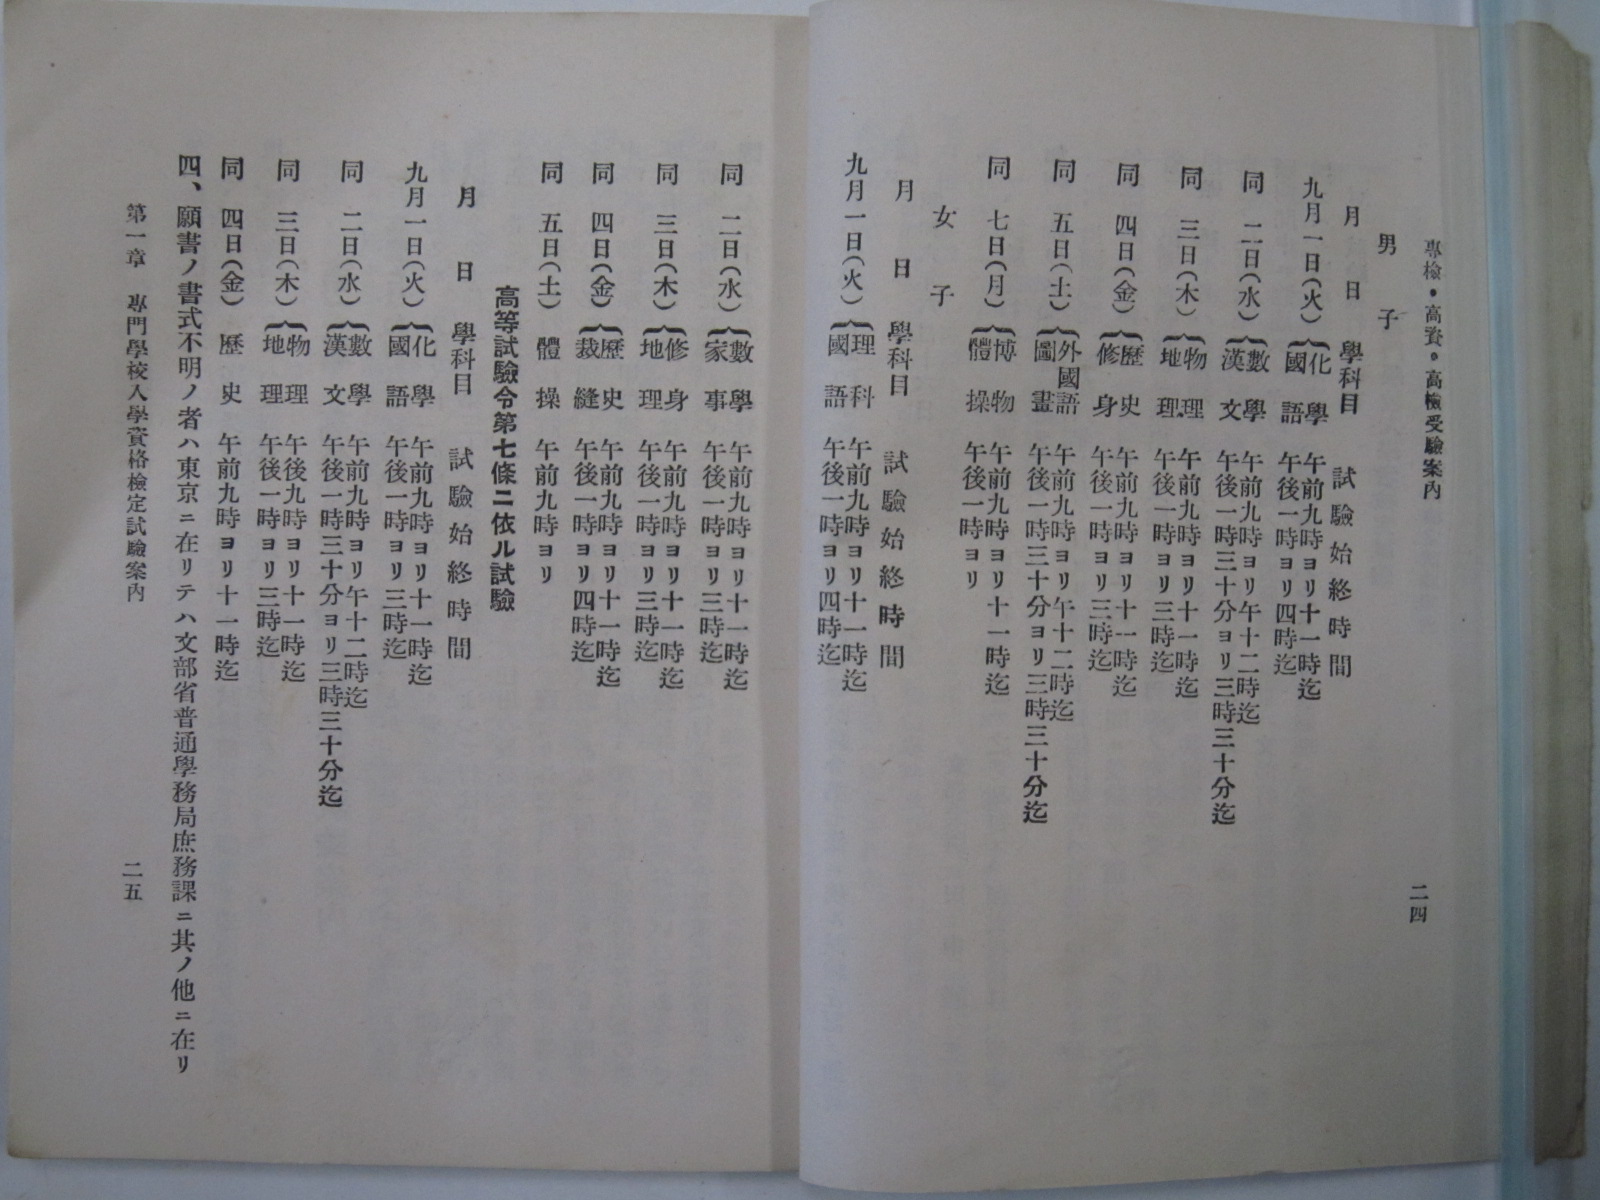 專檢・高資・高檢受驗案內
二四
男子
月日 學科目 試驗始終時間
九月一日(火) 化學 午前九時ヨリ十一時迄
國語 午後一時ヨリ四時迄
同 二日(水) 數學 午前九時ヨリ午十二時迄
漢文 午後一時三十分ヨリ三時三十分迄
同 三日(木) 物理 午前九時ヨリ十一時迄
地理 午後一時ヨリ三時迄
同 四日(金) 歷史 午前九時ヨリ十一時迄
修身 午後一時ヨリ三時迄
同 五日(土) 外國語 午前九時ヨリ午十二時迄
圖畫 午後一時三十分ヨリ三時三十分迄
同 七日(月) 博物 午前九時ヨリ十一時迄
體操 午後一時ヨリ
女子
月日 學科目 試驗始終時間
九月一日(火) 理科 午前九時ヨリ十一時迄
國語 午後一時ヨリ四時迄
同 二日(水) 數學 午前九時ヨリ十一時迄
家事 午後一時ヨリ三時迄
同 三日(木) 修身 午前九時ヨリ十一時迄
地理 午後一時ヨリ三時迄
同 四日(金) 歷史 午前九時ヨリ十一時迄
裁縫 午後一時ヨリ四時迄
同 五日(土) 體操 午前九時ヨリ
高等試驗令第七條ニ依ル試驗
月日 學科目 試驗始終時間
九月一日(火) 化學 午前九時ヨリ十一時迄
國語 午後一時ヨリ三時迄
同 二日(水) 數學 午前九時ヨリ午十二時迄
漢文 午後一時三十分ヨリ三時三十分迄
同 三日(木) 物理 午後九時ヨリ十一時迄
地理 午後一時ヨリ三時迄
同 四日(金) 歷史 午前九時ヨリ十一時迄
四、願書ノ書式不明ノ者ハ東京ニ在リテハ文部省普通學務局庶務課ニ其ノ他ニ在リ
第一章 專門學校入學資格檢定試驗案內
二五